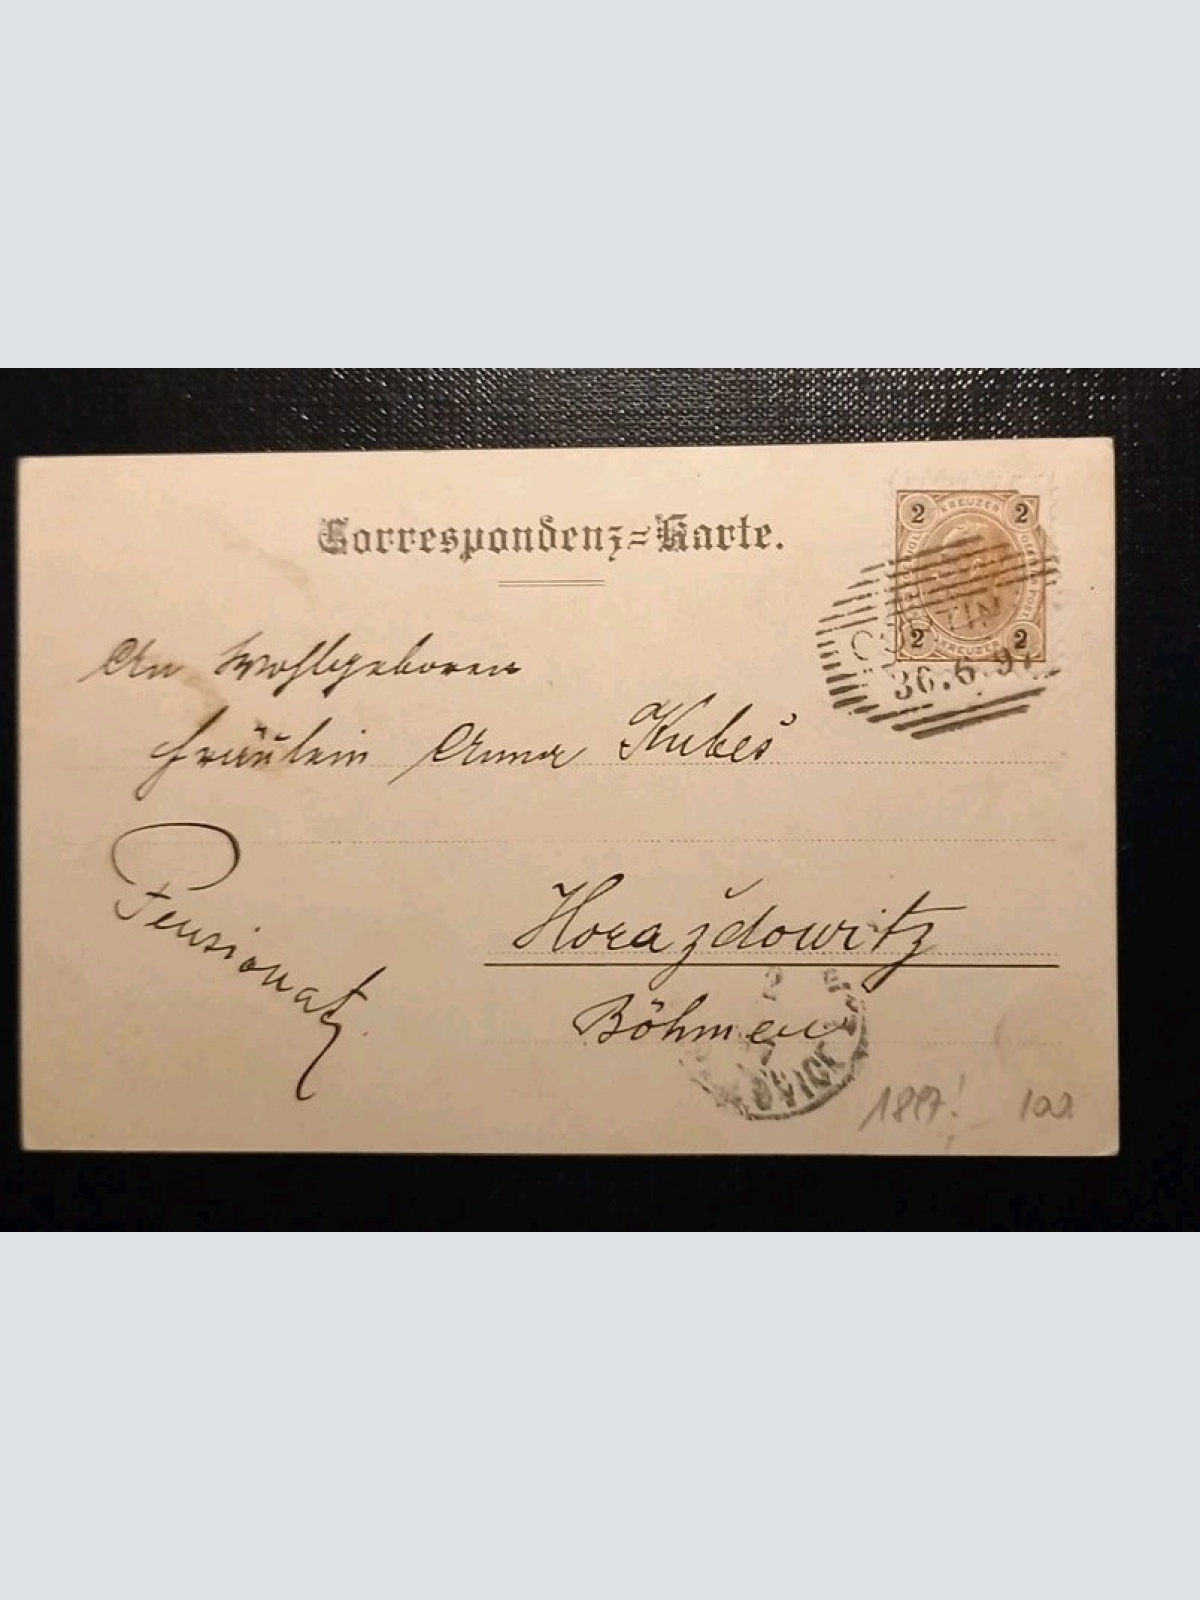 Correspondenz-Karte.
2 KREUZER 2
2 KREUZER 2
TIN
30.6.97
An Wohlgeboren
Fräulein Anna Kubeš
Pensionat
Horaždowitz
Böhmen
1897! 100.